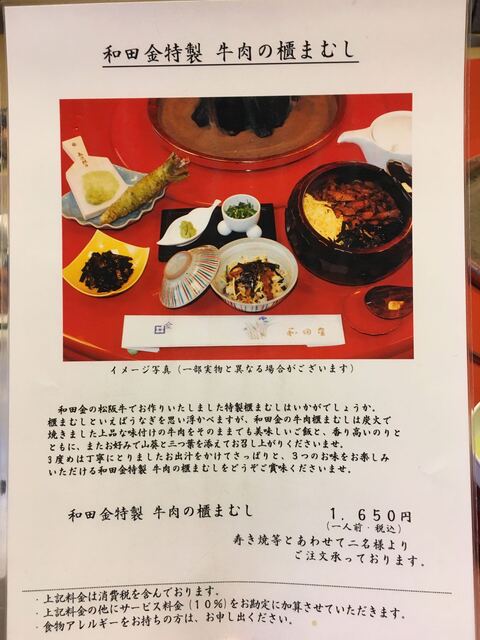 和田金特製 牛肉の櫃まむし
和田金
イメージ写真（一部実物と異なる場合がございます）
和田金の松阪牛でお作りいたしました特製櫃まむしはいかがでしょうか。
櫃まむしといえばうなぎを思い浮かべますが、和田金の牛肉櫃まむしは炭火で
焼きました上品な味付けの牛肉をそのままでも美味しいご飯と、香り高いのりと
ともに、またお好みで山葵と三つ葉を添えてお召し上がりくださいませ。
3度めは丁寧にとりましたお出汁をかけてさっぱりと、３つのお味をお楽しみ
いただける和田金特製 牛肉の櫃まむしをどうぞご賞味くださいませ。
和田金特製 牛肉の櫃まむし 1,650円
（一人前・税込）
寿き焼等とあわせて二名様より
ご注文承っております。
・上記料金は消費税を含んでおります。
・上記料金の他にサービス料金（10％）をお勘定に加算させていただきます。
・食物アレルギーをお持ちの方は、お申し出ください。